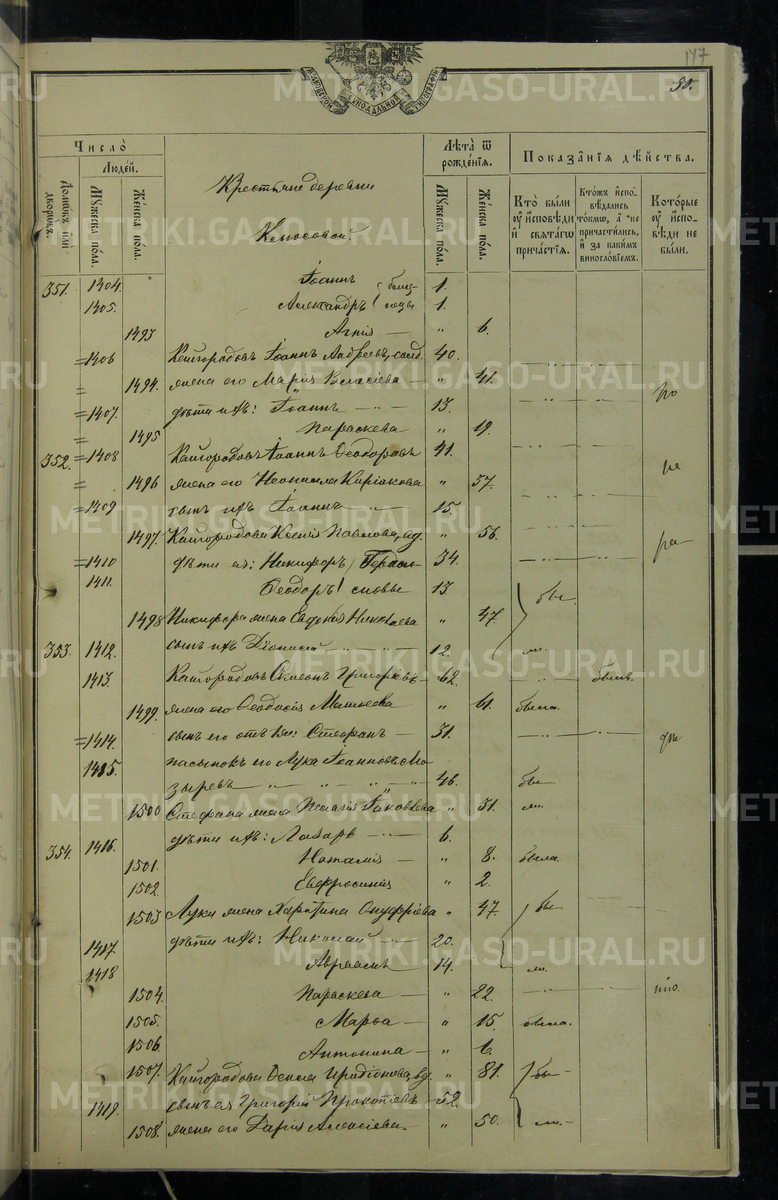 147
50.
МОСКОВСКОЙ СѴНОДАЛЬНОЙ ТИПОГРАФІИ
Число̀
Людей.
Домѡвъ или дворѡвъ.
Мꙋжеска пола.
Женска пола.
Крестьяне деревни
Лѣта ѿ рожденїѧ.
Мꙋжеска пола.
Женска пола.
Показанїѧ дѣйства.
Кто̀ были ᲂу҆ и҆сповѣди и҆ свѧтагѡ причастїѧ.
Ктожъ и҆сповѣдались токмѡ, а҆ не причастились, и҆ за какимъ винословїемъ.
Которые ᲂу҆ и҆сповѣди не были.
351. 1304. Іоаннъ близ- 1.
1305. Александръ нецы 1.
1493 Агнія — " 6.
1406 Кайгородовъ Іоаннъ Андреевъ, солд. 40.
1494. жена его Марія Власіева — " 41.
1407. дѣти ихъ: Іоаннъ 13.
1495 Параскева " 19.
352. 1408 Кайгородовъ Іоаннъ Ѳеодоровъ 41.
1496 жена его Неонилла Киріакова " 37.
1409 сынъ ихъ Іоаннъ 15.
1497. Кайгородова Ксенія Павлова, вд. " 56.
1410 дѣти ея: Никифоръ 34.
1411. Ѳеодоръ 13 бы
1498 Никифора жена Евдокія Николаева " 47
353. 1412. сынъ ихъ Діонисій 12. ли.
1413. Кайгородовъ Симеонъ Григорьевъ 62. былъ.
1499. жена его Ѳеодосія Матѳеева " 61. была.
1414. сынъ его Стефанъ — 31.
1415. пасынокъ его Лука Іоанновъ Мо-
зыревъ 46. бы
1500 Стефана жена Пелагія Іаковлева " 31. ли.
354. 1416. дѣти ихъ: Лазарь 6.
1501. Наталія — " 8. была.
1502 Евфросинія " 2.
1503 Луки жена Харитина Онуфріева " 47. бы
1417. дѣти ихъ: Николай 20.
1418 Авраамъ 14. ли.
1504. Параскева — " 22.
1505. Марѳа — " 15. была.
1506. Антонина — " 6.
1507. Кайгородова Иридіонова, вд. " 81. бы
1419. сынъ ея Григорій Прокопіевъ 52.
1508. жена его Дарія Алексіева. " 50. ли.
METRIKI.GASO-URAL.RU